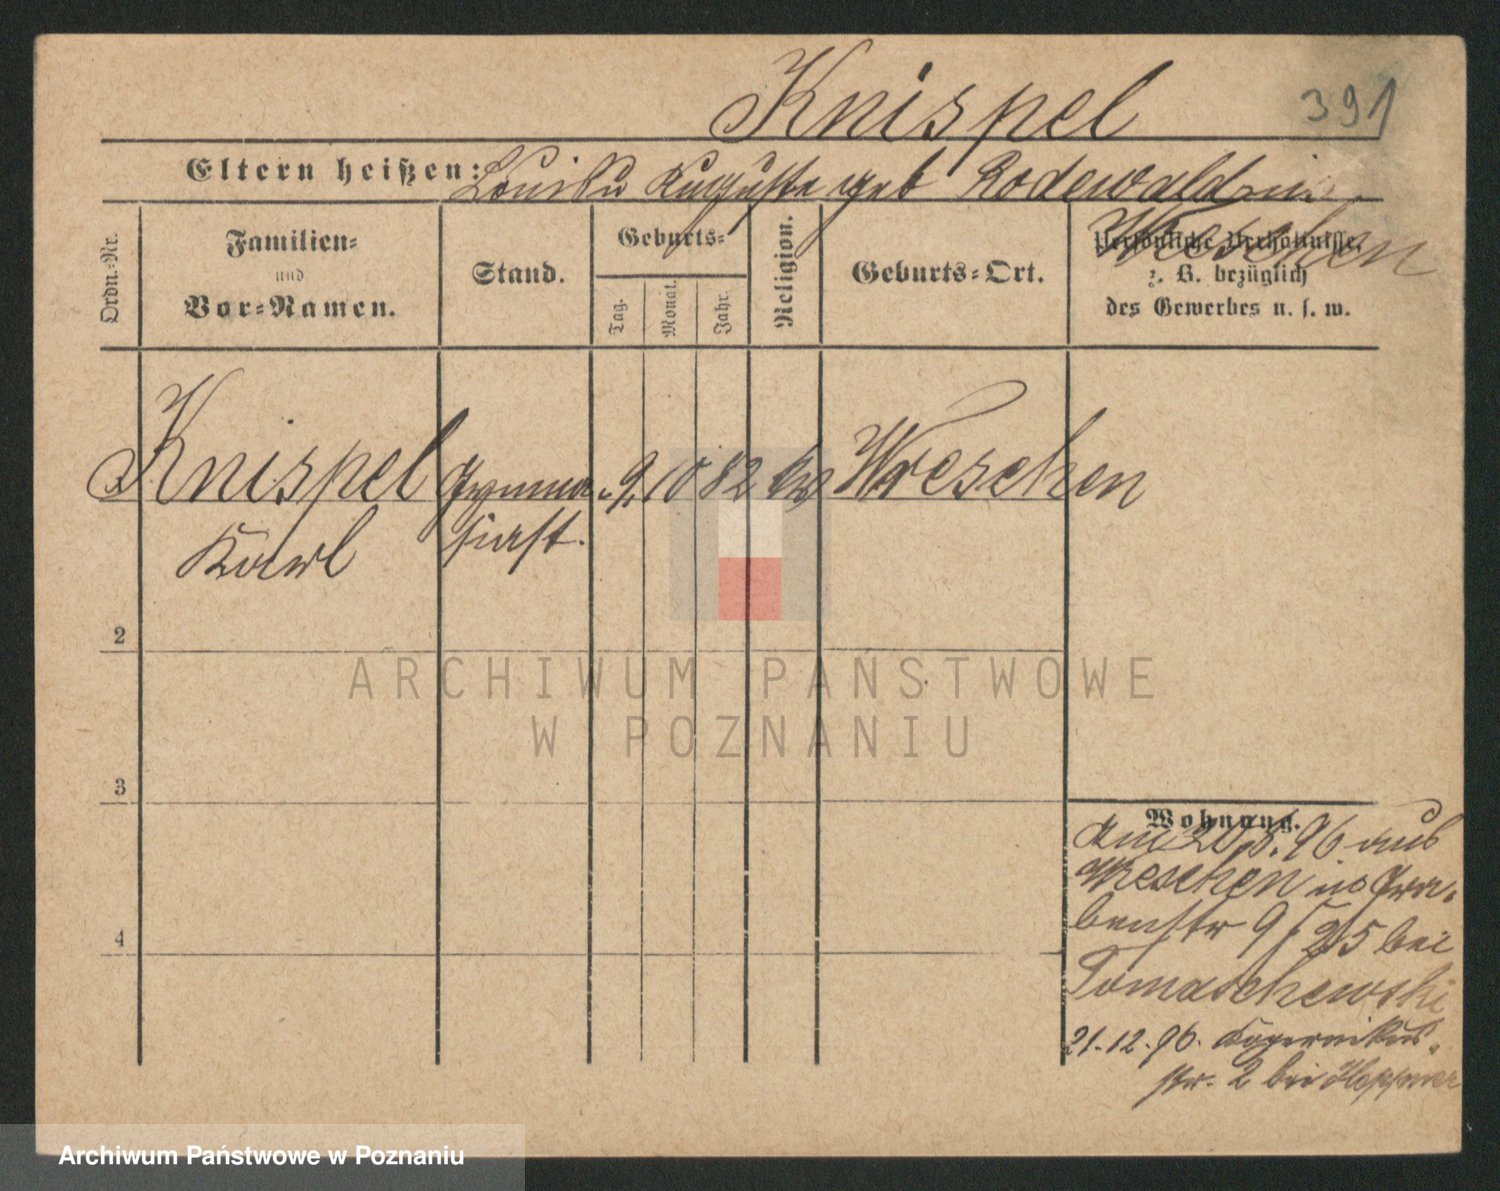 Knispel
391
Eltern heißen: Auguste geb Rodewald in
Wreschen
Ordn.-Nr.
Familien-
und
Vor-Namen.
Stand.
Geburts-
Tag.
Monat.
Jahr.
Religion.
Geburts-Ort.
Persönliche Verhältnisse.
z. B. bezüglich
des Gewerbes u. s. w.
Knispel Gymna- 9. 10 82 Wreschen
Karl siast.
2
3
4
Wohnung.
Am 20.8.96 aus
Wreschen n. Gra-
benstr 9 / 25 bei
Tomaschewski
21.12.96. Kopernikus-
str. 2 bei Heppner
ARCHIWUM PAŃSTWOWE
W POZNANIU
Archiwum Państwowe w Poznaniu